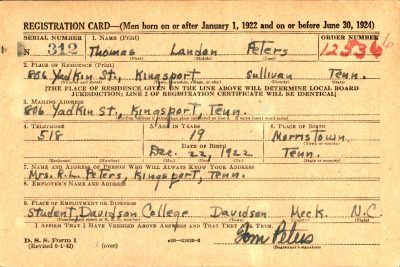 REGISTRATION CARD—(Men born on or after January 1, 1922 and on or before June 30, 1924)
SERIAL NUMBER 1. NAME (Print) ORDER NUMBER
N 312 Thomas Landon Peters 12536
(First) (Middle) (Last)
2. PLACE OF RESIDENCE (Print)
806 Yadkin St., Kingsport Sullivan Tenn.
(Number and street) (Town, township, village, or city) (County) (State)
[THE PLACE OF RESIDENCE GIVEN ON THE LINE ABOVE WILL DETERMINE LOCAL BOARD
JURISDICTION; LINE 2 OF REGISTRATION CERTIFICATE WILL BE IDENTICAL]
3. MAILING ADDRESS
806 Yadkin St., Kingsport, Tenn.
[Mailing address if other than place indicated on line 2. If same insert word same]
4. TELEPHONE 5. AGE IN YEARS 6. PLACE OF BIRTH
518 19 Morristown
DATE OF BIRTH (Town or county)
Dec. 22, 1922 Tenn.
(Mo.) (Day) (Yr.) (State or country)
7. NAME AND ADDRESS OF PERSON WHO WILL ALWAYS KNOW YOUR ADDRESS
Mrs. R.L. Peters, Kingsport, Tenn.
8. EMPLOYER'S NAME AND ADDRESS
9. PLACE OF EMPLOYMENT OR BUSINESS
Student, Davidson College Davidson Meck. N.C.
(Number and street or R. F. D. number) (Town) (County) (State)
I AFFIRM THAT I HAVE VERIFIED ABOVE ANSWERS AND THAT THEY ARE TRUE.
D. S. S. Form 1
(Revised 6-1-42) (over) Tom Peters
(Registrant's signature)